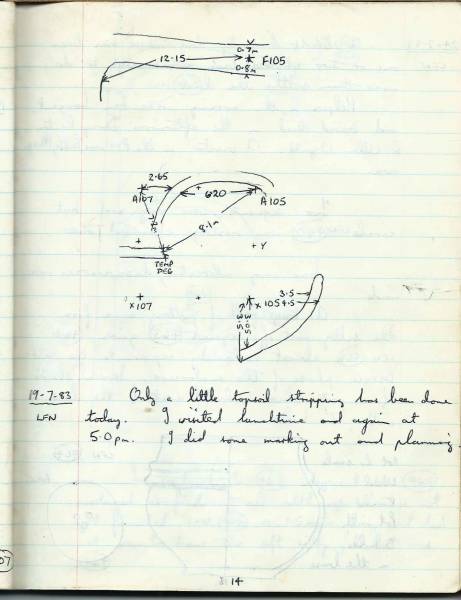 0.7m
12.15 F105
0.8m
2.65
A107 6.20 A105
8.1m
+ Y
TEMP
PEG
3.5
x107 x105 4.5
19-7-83 Only a little topsoil stripping has been done
LFN today. I visited lunchtime and again at
5.0pm. I did some marking out and planning.
07
14